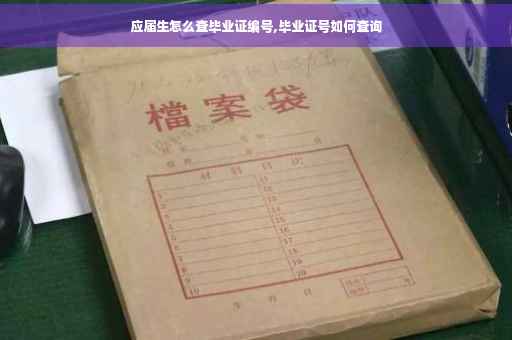 应届生怎么查毕业证编号,毕业证号如何查询
檔案袋
材料目次
1
11
2
12
3
13
4
14
5
15
6
16
7
17
8
18
9
19
10
20
年 月 日